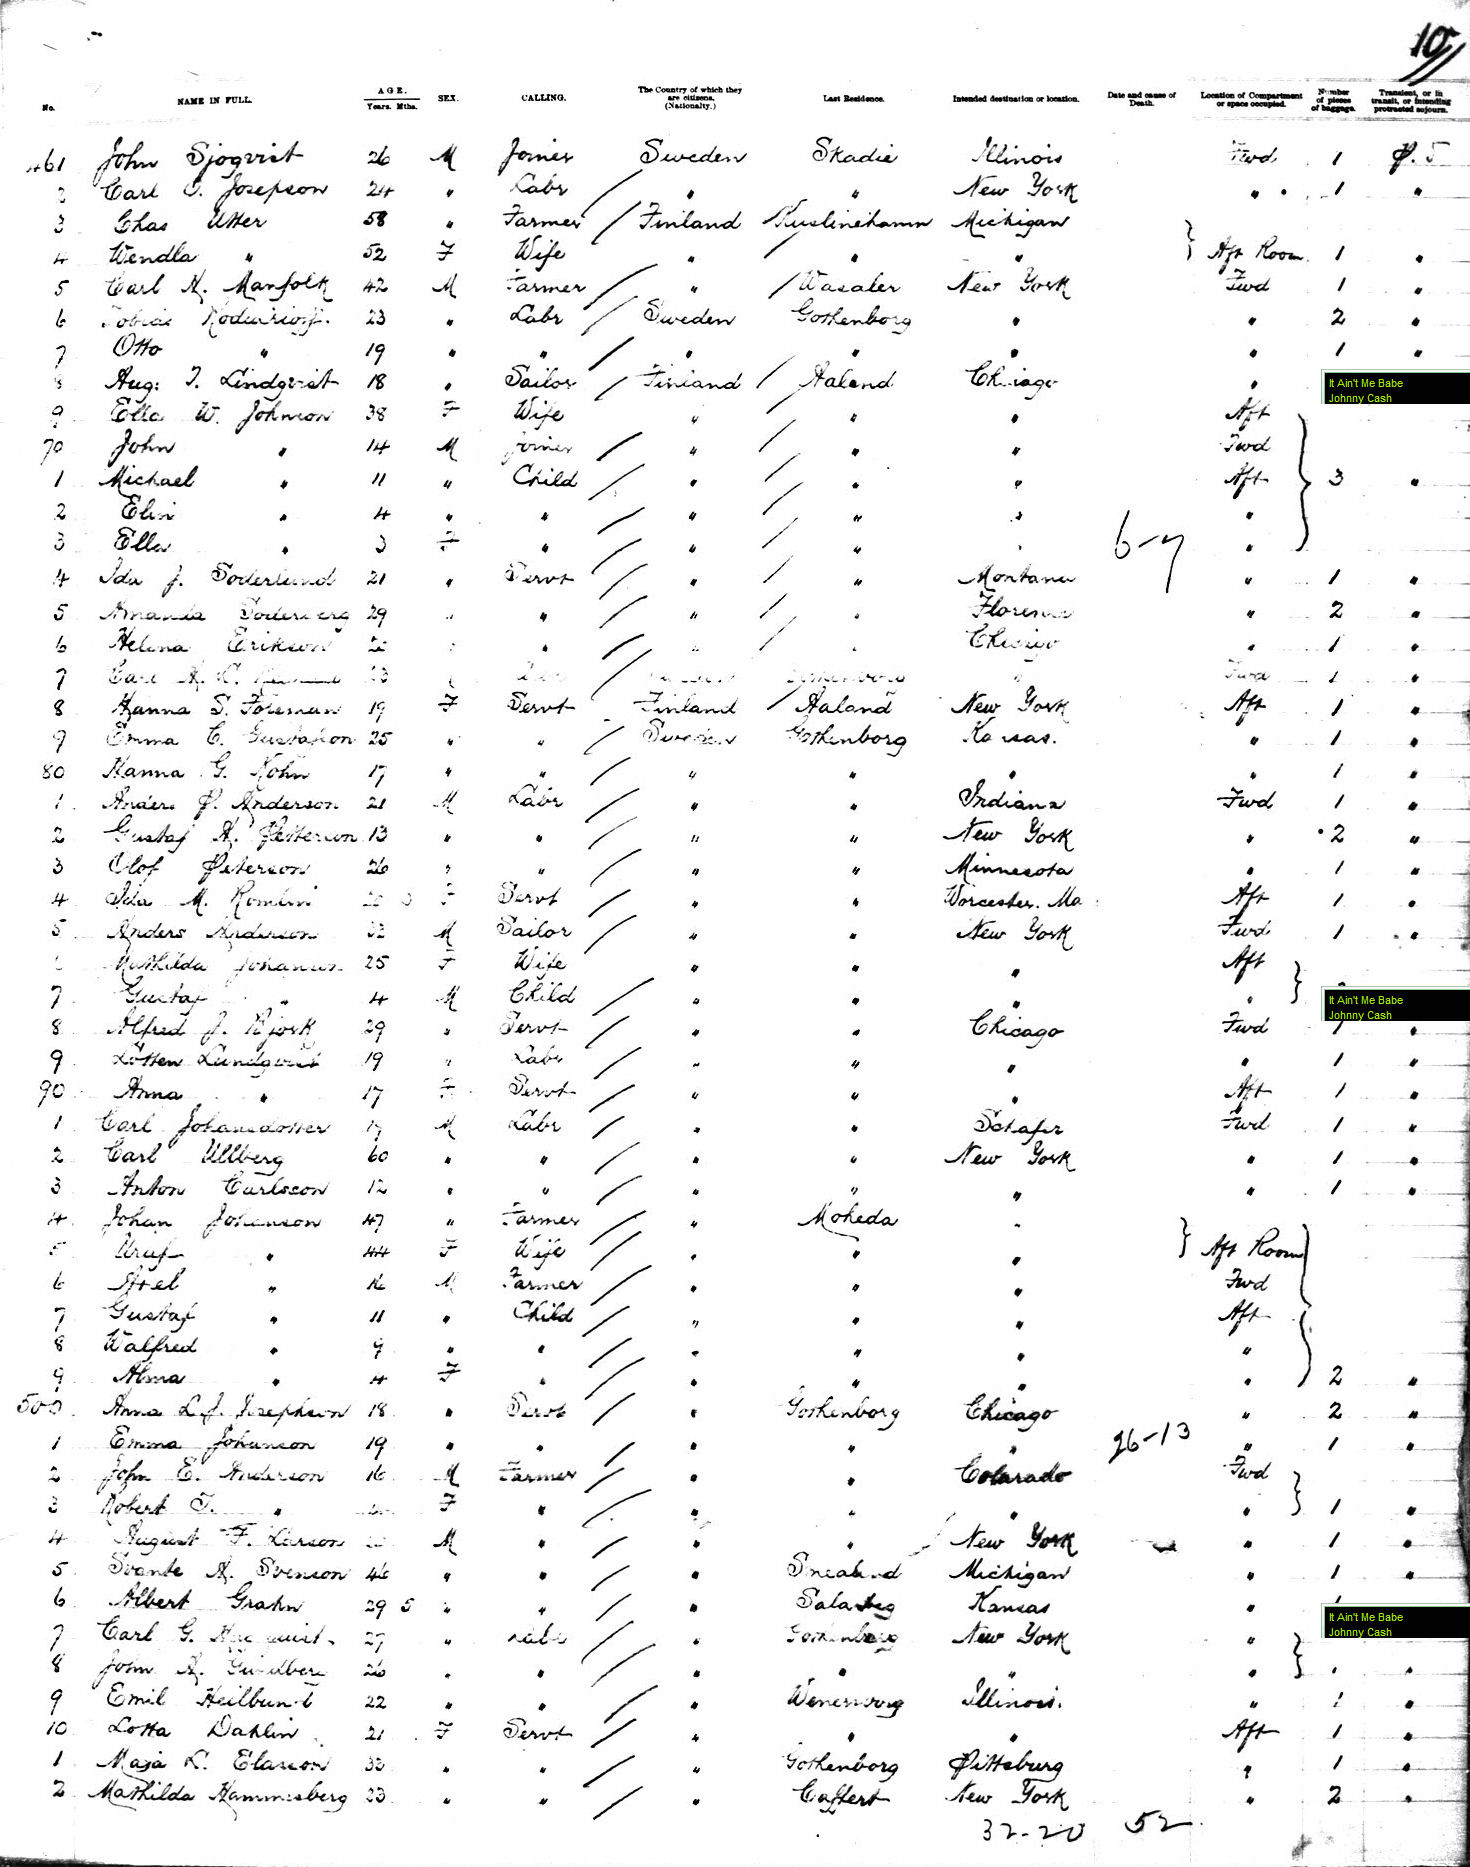 10
No. NAME IN FULL. AGE. Years. Mths. SEX. CALLING. The Country of which they are citizens. (Nationalty.) Last Residence. Intended destination or location. Date and cause of Death. Location of Compartment or space occupied. Number of pieces of baggage. Transient, or in transit, or intending protracted sojourn.
461 John Sjogvist 26 M Joiner Sweden Skadie Illinois Fwd 1 P. S
2 Carl O. Josepson 24 " Labr " " New York " 1 "
3 Chas Utter 58 " Farmer Finland Michigan
4 Wendla " 52 F Wife " " " Aft Room 1 "
5 Carl A. Manfolk 42 M Farmer " Wasaler New York Fwd 1 "
6 Tobias 23 " Labr Sweden Gothenborg " " 2 "
7 Otto " 19 " " " " " " 1 "
8 Aug: T. Lindqvist 18 " Sailor Finland Aaland Chicago "
It Ain't Me Babe
Johnny Cash
9 Ella W. Johnson 38 F Wife " " " Aft
70 John " 14 M Joiner " " " Fwd
1 Michael " 11 " Child " " " Aft 3 "
2 Elin " 4 " " " " " "
3 Ella " 3 F " " " " 6-7 "
4 Ida J. Soderlund 21 " Servt " " Montana " 1 "
5 Amanda Soderberg 29 " " " " Florence " 2 "
6 Helena Erikson " " " " Chicago " 1 "
7 Carl A. Fwd 1 "
8 Hanna S. Foreman 19 F Servt Finland Aaland New York Aft 1 "
9 Emma C. Gustafson 25 " " Sweden Gothenborg Kansas. " 1 "
80 Hanna G. Kohn 17 " " " " " " 1 "
1 Anders P. Anderson 21 M Labr " " Indiana Fwd 1 "
2 Gustaf A. Petterson 13 " " " " New York " 2 "
3 Olof Peterson 26 " " " " Minnesota " 1 "
4 Ida M. Romlin F Servt " " Worcester. Ma Aft 1 "
5 Anders Anderson 32 M Sailor " " New York Fwd 1 "
Mathilda Johanson 25 F Wife " " " Aft
7 Gustaf " 4 M Child " " " "
It Ain't Me Babe
Johnny Cash
8 Alfred J. Bjork 29 " Servt " " Chicago Fwd 1 "
9 Lotten Lundqvist 19 " Labr " " " " 1 "
90 Anna " 17 F Servt " " " Aft 1 "
1 Carl Johansdotter 17 M Labr " " Schafer Fwd 1 "
2 Carl Ullberg 60 " " " " New York " 1 "
3 Anton Carlsson 12 " " " " " " 1 "
4 Johan Johanson 47 " Farmer " Moheda "
5 " 44 F Wife " " " Aft Room
6 Axel " 16 M Farmer " " " Fwd
7 Gustaf " 11 " Child " " " Aft
8 Walfred " 9 " " " " " "
9 Alma " 4 F " " " " " 2 "
500 Anna L. J. Josephson 18 " Servt " Gothenborg Chicago " 2 "
1 Emma Johanson 19 " " " " " 26-13 " 1 "
2 John E. Anderson 16 M Farmer " " Colorado Fwd
3 Robert T. " F " " " " " 1 "
4 August F. Larson M " " " New York " 1 "
5 Svante A. Svenson 46 " " " Smealand Michigan " 1 "
6 Albert Grahn 29 5 " " " Kansas "
It Ain't Me Babe
Johnny Cash
7 Carl G. 27 " Labr " Gothenborg New York "
8 John A. 26 " " " " " " " "
9 Emil Heilbundt 22 " " " Wenersborg Illinois. " 1 "
10 Lotta Dahlin 21 F Servt " " " Aft 1 "
1 Maja L. Elarson 33 " " " Gothenborg Pittsburg " 1 "
2 Mathilda Hammesberg 23 " " " Caffert New York " 2 "
32-20 52